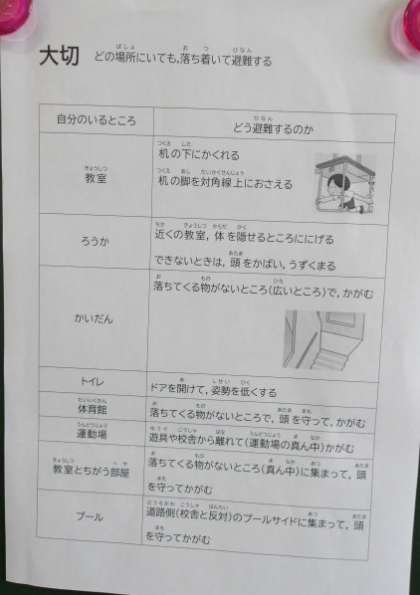 大切 どの場所にいても,落ち着いて避難する
自分のいるところ どう避難するのか
教室 机の下にかくれる
机の脚を対角線上におさえる
ろうか 近くの教室,体を隠せるところににげる
できないときは,頭をかばい,うずくまる
かいだん 落ちてくる物がないところ(広いところ)で,かがむ
トイレ ドアを開けて,姿勢を低くする
体育館 落ちてくる物がないところで,頭を守って,かがむ
運動場 遊具や校舎から離れて(運動場の真ん中)かがむ
教室とちがう部屋 落ちてくる物がないところ(真ん中)に集まって,頭
を守ってかがむ
プール 道路側(校舎と反対)のプールサイドに集まって,頭
を守ってかがむ